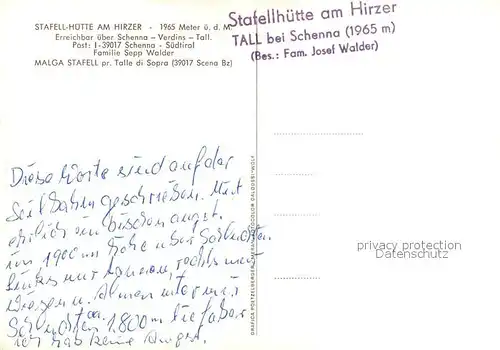 STAFELL-HÜTTE AM HIRZER - 1965 Meter ü. d. M.
Erreichbar über Schenna - Verdins - Tall.
Post: I-39017 Schenna - Südtirol
Familie Sepp Walder
MALGA STAFELL pr. Talle di Sopra (39017 Scena Bz)
Stafellhütte am Hirzer
TALL bei Schenna (1965 m)
(Bes.: Fam. Josef Walder)
Diese Karte sind auf der
Seilbahn geschrieben. Mut
ehrlich ein bischen angst.
in 1900 m Höhe über Schluchten.
links nur rechts nur
Wiesen u. Almen unter mir
Schluchten 1800 m tief aber
ich hab keine Angst.
GRAFICA PÖTZELBERGER
privacy protection
Datenschutz